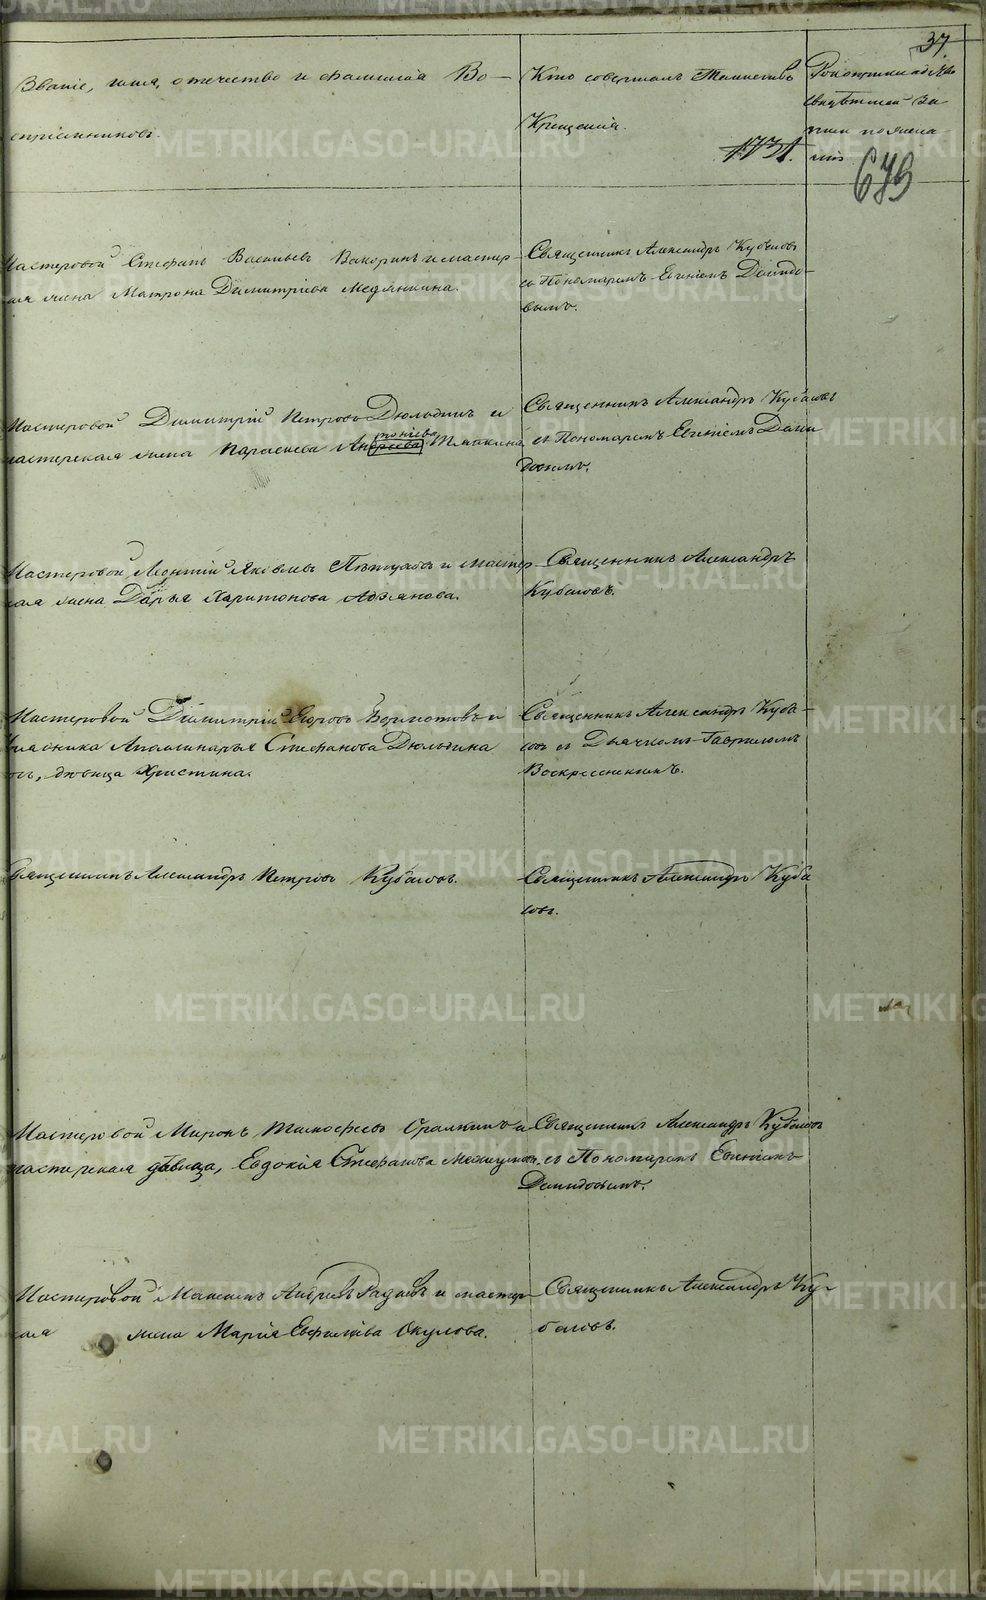 37
Званіе, имя, отечество и фамилія Во-
спріемниковъ.
Кто совершалъ Таинство
Крещенія.
Рукоприкладство
свидѣтелей за-
писи по жела
нію
673
Мастеровой Стефанъ Васильевъ Вакоринъ и мастер-
ская жена Матрона Димитріева Медянкина.
Священникъ Александръ Кубасовъ
съ Пономаремъ Евгеніемъ Демидо-
вымъ.
Мастеровой Димитрій Петровъ Дюльдинъ и
мастерская жена Параскева
Священникъ Александръ Кубасовъ
съ Пономаремъ Евгеніемъ Деми
довымъ.
Мастеровой Леонтій Яковлевъ Пѣтуховъ и мастер
ская жена Дарья Харитонова
Священникъ Александръ
Кубасовъ.
Мастеровой Димитрій Егоровъ Бормотовъ и
Аполлинарья Стефанова Дюльдина
дѣвица Христина.
Священникъ Александръ Куба-
совъ съ Дьячкомъ Гавриломъ
Воскресенскимъ.
Священникъ Александръ Петровъ Кубасовъ.
Священникъ Александръ Куба
совъ.
Мастеровой Миронъ Тимофеевъ и
мастерская дѣвица, Евдокія Стефанова
Священникъ Александръ Кубасовъ
съ Пономаремъ Евгеніемъ
Демидовымъ.
Мастеровой Максимъ Андреевъ и мастер
ская жена Марія Окулова.
Священникъ Александръ Ку-
басовъ.
METRIKI.GASO-URAL.RU